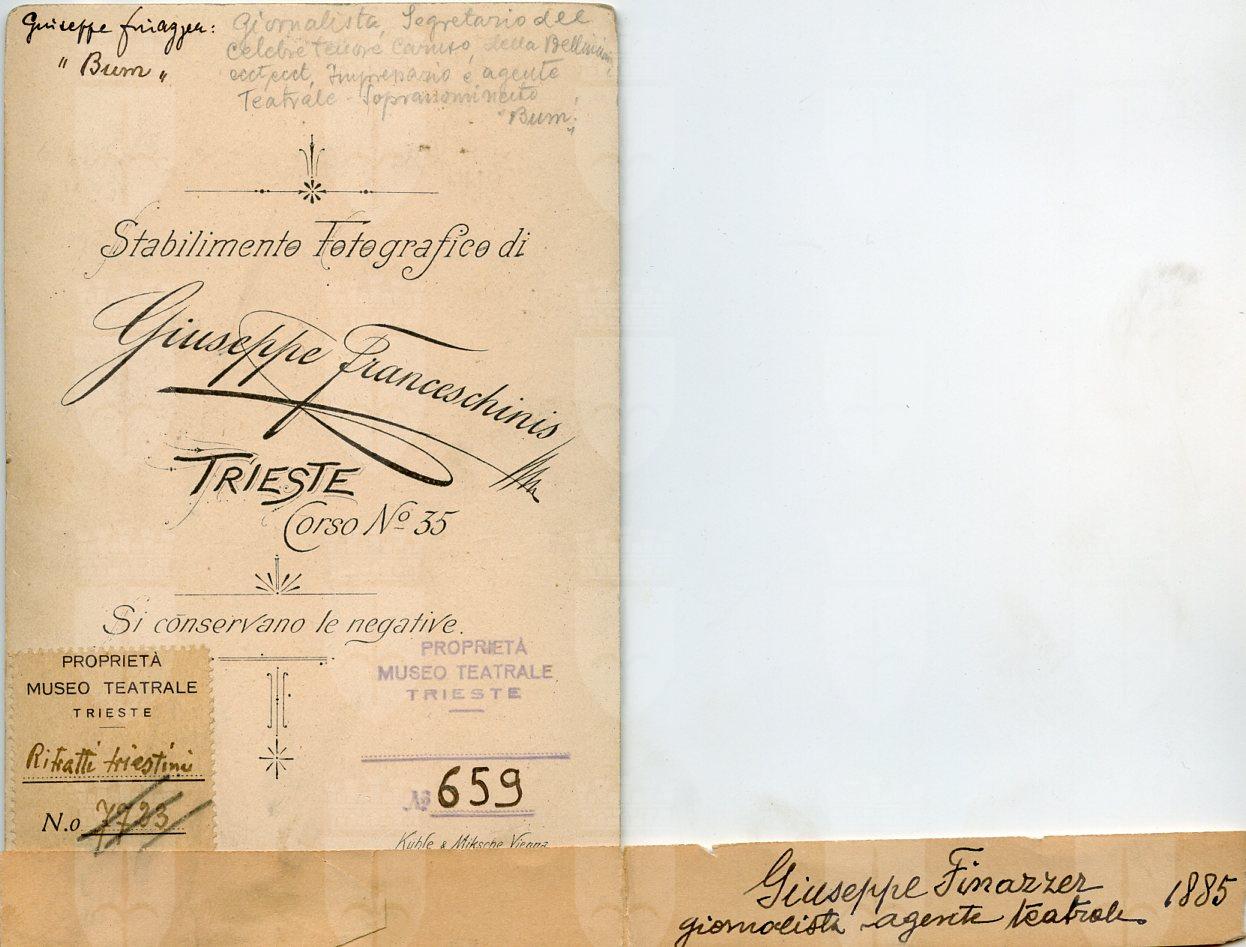 Giuseppe Finazzer:
" Bum "
Giornalista, Segretario del
celebre tenore Caruso, della Bellincioni
ecct, ecct, Impresario e agente
Teatrale - Soprannominato
"Bum"
Stabilimento Fotografico di
Giuseppe Franceschinis
TRIESTE
Corso Nº 35
Si conservano le negative.
PROPRIETÀ
MUSEO TEATRALE
TRIESTE
Ritratti triestini
N.o 7723
PROPRIETÀ
MUSEO TEATRALE
TRIESTE
Nº 659
Kühle & Miksche Vienna
Giuseppe Finazzer 1885
giornalista agente teatrale